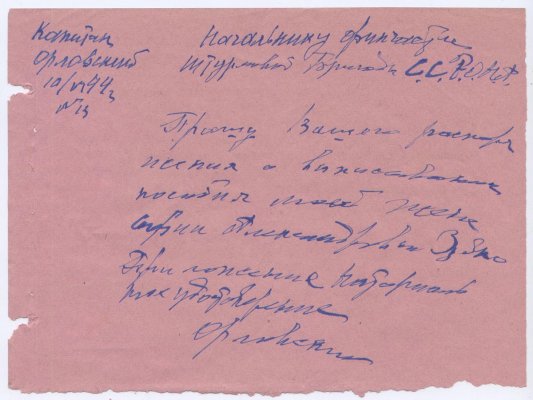 Капитан
Орловский
10/VI 44 г
№ 13
Начальнику финчасти
Штурмовой Бригады С.С. Р.О.Н.А.
Прошу Вашего распоря
жения о выписывании
пособия моей жене
Софии Александровны
Приложение Нотариаль
ное удостоверение
Орловский